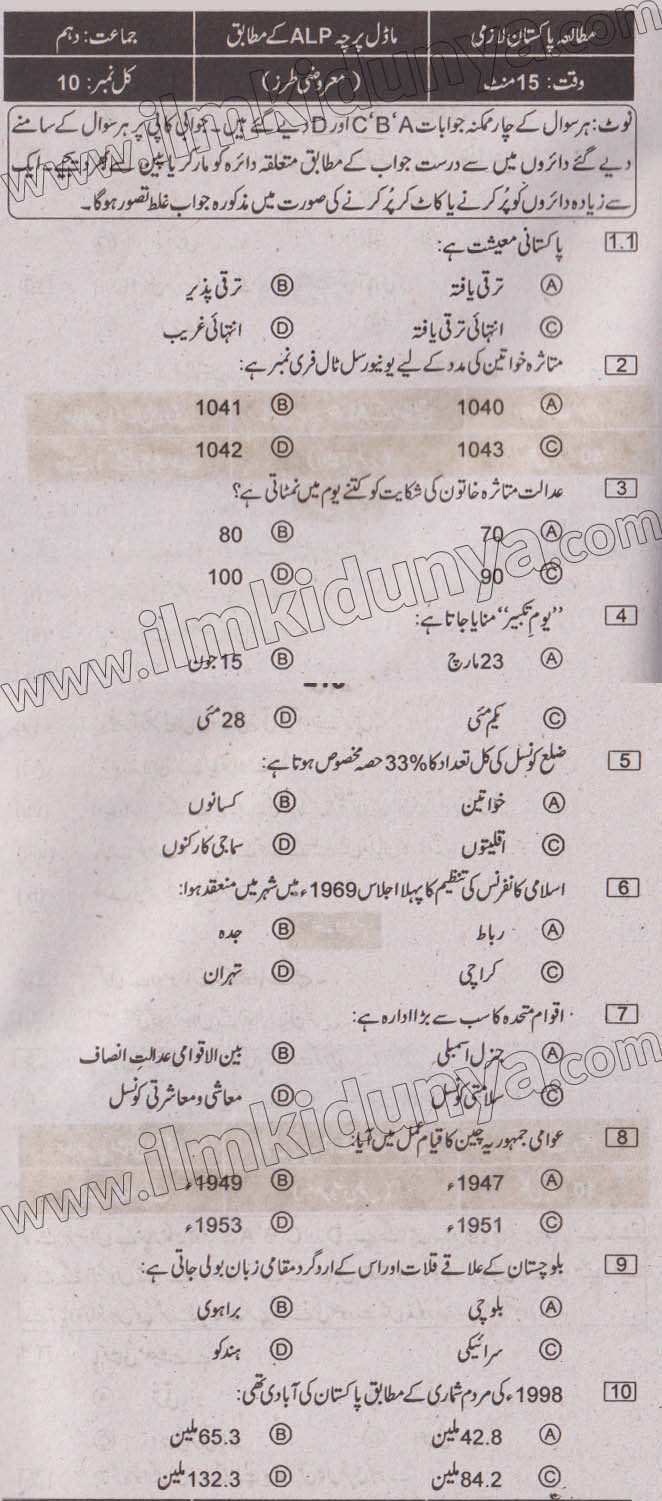 مطالعہ پاکستان لازمی ماڈل پرچہ ALP کے مطابق جماعت: دہم
وقت: 15 منٹ (معروضی طرز) کل نمبر: 10
نوٹ: ہر سوال کے چار ممکنہ جوابات A'B'C اور D دیے گئے ہیں۔ جوابی کاپی پر ہر سوال کے سامنے
دیے گئے دائروں میں سے درست جواب کے مطابق متعلقہ دائرہ کو مارکر یا پین سے بھر دیجیے۔ ایک
سے زیادہ دائروں کو پُر کرنے یا کاٹ کر پُر کرنے کی صورت میں مذکورہ جواب غلط تصور ہوگا۔
1.1 پاکستانی معیشت ہے:
A ترقی یافتہ B ترقی پذیر
C انتہائی ترقی یافتہ D انتہائی غریب
2 متاثرہ خواتین کی مدد کے لیے یونیورسل ٹال فری نمبر ہے:
A 1040 B 1041
C 1043 D 1042
3 عدالت متاثرہ خاتون کی شکایت کو کتنے یوم میں نمٹاتی ہے؟
A 70 B 80
C 90 D 100
4 ”یومِ تکبیر“ منایا جاتا ہے:
A 23 مارچ B 15 جون
C یکم مئی D 28 مئی
5 ضلع کونسل کی کل تعداد کا 33% حصہ مخصوص ہوتا ہے:
A خواتین B کسانوں
C اقلیتوں D سماجی کارکنوں
6 اسلامی کانفرنس کی تنظیم کا پہلا اجلاس 1969ء میں شہر میں منعقد ہوا:
A رباط B جدہ
C کراچی D تہران
7 اقوام متحدہ کا سب سے بڑا ادارہ ہے:
A جنرل اسمبلی B بین الاقوامی عدالتِ انصاف
C سلامتی کونسل D معاشی و معاشرتی کونسل
8 عوامی جمہوریہ چین کا قیام عمل میں آیا:
A 1947ء B 1949ء
C 1951ء D 1953ء
9 بلوچستان کے علاقے قلات اور اس کے اردگرد مقامی زبان بولی جاتی ہے:
A بلوچی B براہوی
C سرائیکی D ہندکو
10 1998ء کی مردم شماری کے مطابق پاکستان کی آبادی تھی:
A 42.8 ملین B 65.3 ملین
C 84.2 ملین D 132.3 ملین
www.ilmkidunya.com
www.ilmkidunya.com
www.ilmkidunya.com